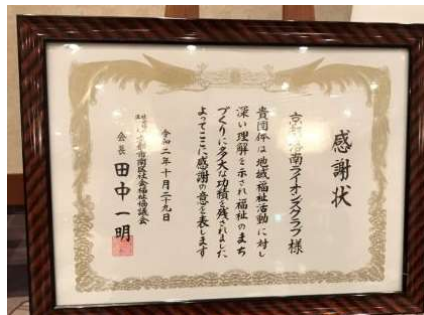 感謝状
京都洛南ライオンズクラブ様
貴団体は地域福祉活動に対し
深い理解を示され福祉のまち
づくりに多大な功績を残されました
よってここに感謝の意を表します
令和二年十月二十九日
京都市南区社会福祉協議会
会長 田中一明